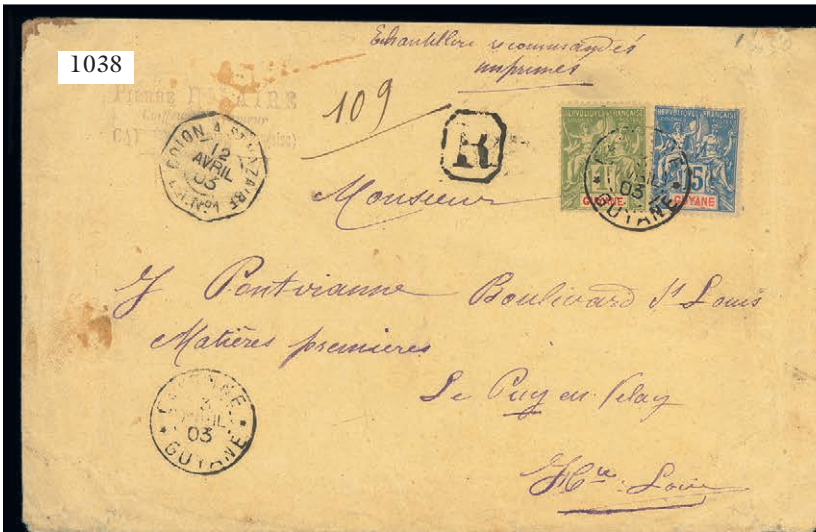 1038
Echantillon recommandés
imprimés
Pierre
Coiffeur
109
R
COLON A ST NAZAIRE
12
AVRIL
03
L.D. Nº1
REPUBLIQUE FRANÇAISE
1F
GUYANE
REPUBLIQUE FRANÇAISE
15
GUYANE
03
GUYANE
Monsieur
J Pontvianne Boulevard St Louis
Matières premieres
Le Puy en Velay
CAYENNE
3
AVRIL
03
GUYANE
Hte Loire